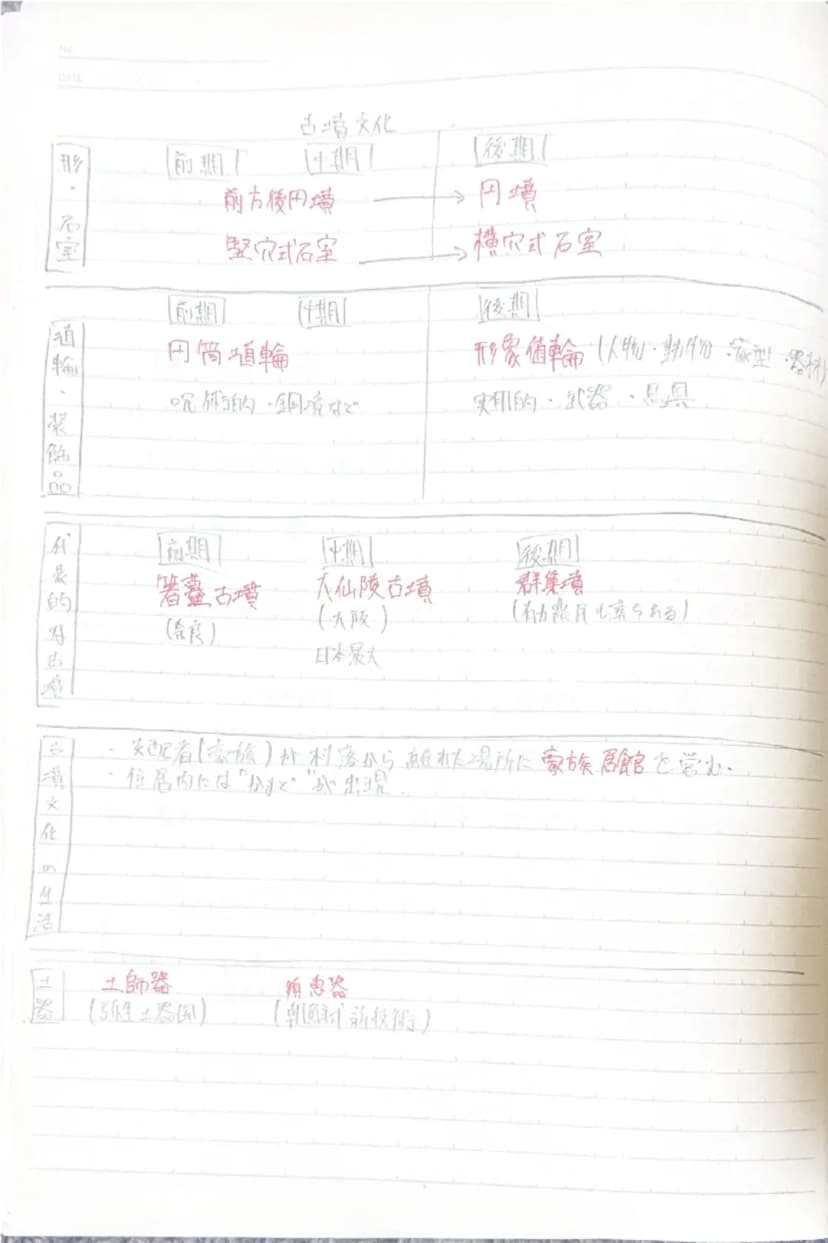 No.
DATE
古墳文化
形・石室
前期 中期 後期
前方後円墳 → 円墳
竪穴式石室 → 横穴式石室
埴輪・装飾品
前期 中期 後期
円筒埴輪 形象埴輪(人物・動物・家型・器材)
呪術的・銅鏡など 実用的・武器・馬具
代表的な古墳
前期 中期 後期
箸墓古墳 大仙陵古墳 群集墳
(奈良) (大阪) (有力農民も葬られる)
日本最大
古墳文化の生活
・支配者(豪族)が村落から離れた場所に豪族居館を営む。
・住居内には"かまど"が出現
土器
土師器 須恵器
(弥生土器風) (朝鮮式新技術)